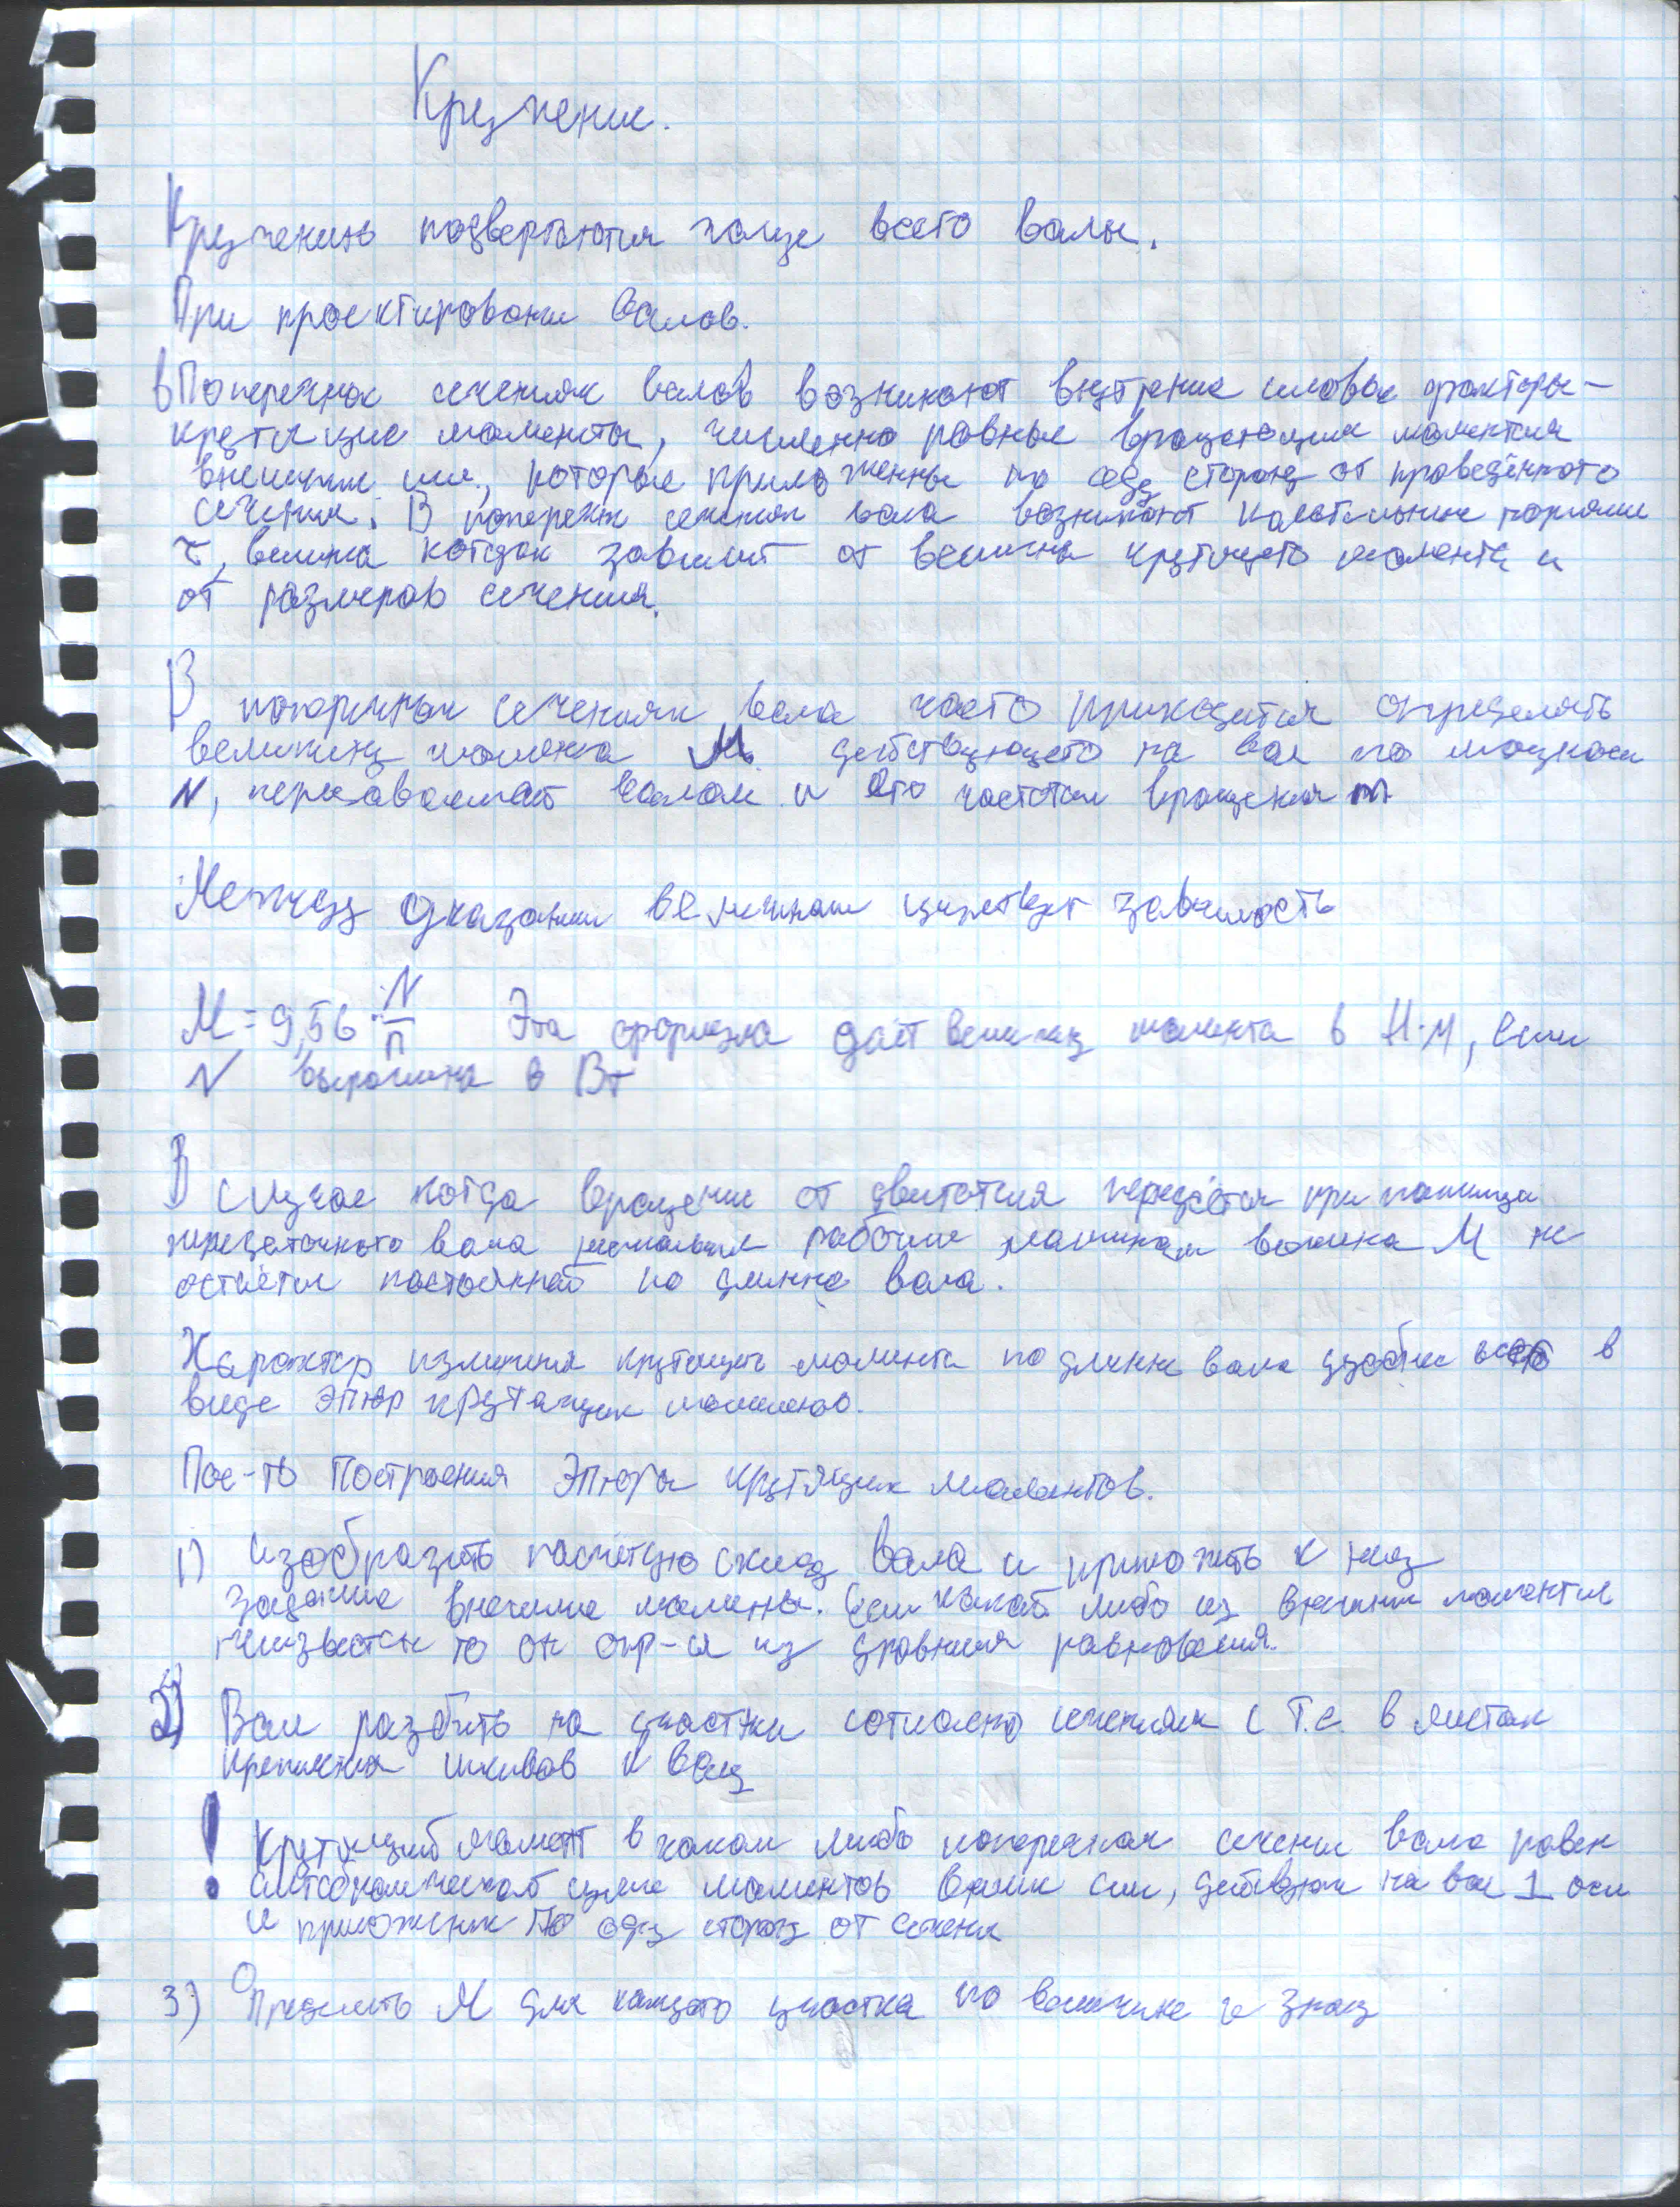 Кручение.
Кручению подвергаются чаще всего валы.
При проектировани валов.
в Поперечнох сечениях валов возникают внутрение силовые факторы-
крутящие моменты, численно равные вращающим моментам
внешних сил, которые приложенны по одну сторону от проведённого
сечения. В попереч сечениях вала возникают касательные
τ, зависит от величины крутящего момента и
от размеров сечения.
В поперечных сечениях вала часто приходится определять
величину момента М действующего на вал по мощности
N, валом и его частотам вращения n
Между указаными величинами зависимость
М = 9,56 · N/n Эта формула даёт величину момента в Н·м, если
N выражена в Вт
В случае когда вращение от двигателя передаётся при помощи
передаточного вала рабочим машинам величина М не
остаётся постоянной по длинне вала.
Характер изменения крутящего момента по длинне вала в
виде эпюр крутящих моментов.
Пос-ть Построения Эпюры крутящих моментов.
1) изобразить расчётную схему вала и приложить к нему
заданые внешние моменты. Если какой либо из внешних моментов
неизвестен то он опр-ся из уравнения равновесия.
2) Вал разбить на участки согласно сечениям с Т.е. в местах
крепления шкивов к валу
! Крутящий момент в каком либо поперечнам сечени вала равен
алгебраической сумме моментов сил, на вал ⊥ оси
и приложеных по одну сторону от сечения
3) Определить М для каждого участка по величине и знаку